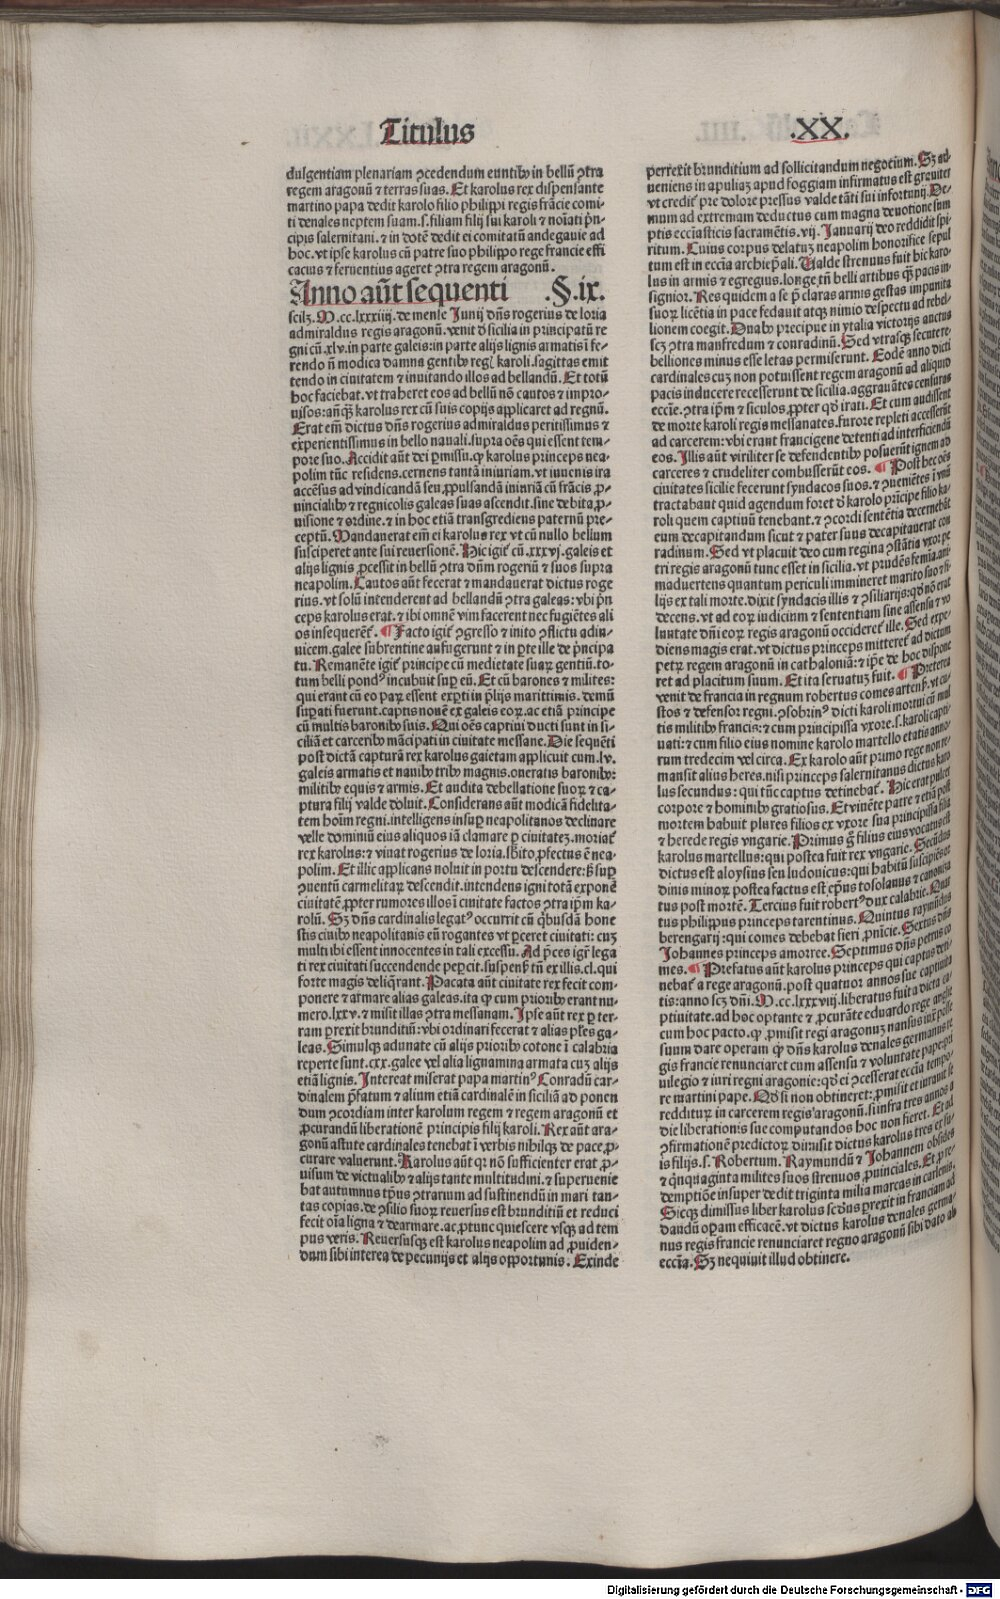 Titulus
.XX.
dulgentiam plenariam ꝯcedendum euntibꝰ in bellū ꝯtra
regem aragonū ⁊ terras suas. Et karolus rex dispensante
martino papa dedit karolo filio philippi regis frācie comi-
ti denales neptem suam .s. filiam filij sui karoli ⁊ noiati prin
cipis salernitani. ⁊ in dotē dedit ei comitatū andegauie ad
hoc. vt ipse karolus cū patre suo philippo rege francie effi
cacius ⁊ feruentius ageret ꝯtra regem aragonū.
Anno aūt sequenti .§.ix.
scilꝫ. M.cc.lxxxiiij. de mense Junij dn̄s rogerius de loria
admiraldus regis aragonū. venit d̄ sicilia in principatū re
gni cū .xlv. in parte galeis: in parte alijs lignis armatis ī fe-
rendo n̄ modica damna gentibꝰ regꝭ karoli. sagittas emit
tendo in ciuitatem ⁊ inuitando illos ad bellandū. Et totū
hoc faciebat. vt traheret eos ad bellū nō cautos ⁊ impro-
uisos: anq̄ꝫ karolus rex cū suis copijs applicaret ad regnū.
Erat em̄ dictus dn̄s rogerius admiraldus peritissimus ⁊
experientissimus in bello nauali. supra oēs qui essent tem-
pore suo. Accidit aūt dei ꝑmissu. ꝙ karolus princeps nea-
polim tūc residens. cernens tantā iniuriam. vt iuuenis ira
accēsus ad vindicandā seu ꝓpulsandā iniuriā cū frācis ꝓ-
uincialibꝰ ⁊ regnicolis galeas suas ascendit. sine debita ꝓ-
uisione ⁊ ordine. ⁊ in hoc etiā transgrediens paternū pre-
ceptū. Mandauerat em̄ ei karolus rex vt cū nullo bellum
susciperet ante sui reuersionē. Hic igit̄ cū .xxxvj. galeis et
alijs lignis ꝓcessit in bellū ꝯtra dn̄m rogeriū ⁊ suos supra
neapolim. Cautos aūt fecerat ⁊ mandauerat dictus roge
rius. vt solū intenderent ad bellandū ꝯtra galeas: vbi prin
ceps karolus erat. ⁊ ibi omnē vim facerent nec fugiētes ali
os insequerēt̄. ¶ Facto igit̄ ꝯgressu ⁊ inito ꝯflictu adin-
uicem. galee surrentine aufugerunt ⁊ in ꝑte ille de principa
tu. Remanēte igit̄ principe cū medietate suaꝝ gentiū. to-
tum belli pondꝰ incubuit suꝑ eū. Et cū barones ⁊ milites:
qui erant cū eo paꝝ essent exꝑti in p̄lijs marittimis. demū
suꝑati fuerunt. captis nouē ex galeis eoꝝ. ac etiā principe
cū multis baronibꝰ suis. Qui oēs captiui ducti sunt in si-
ciliā et carceribꝰ mācipati in ciuitate messane. Die sequēti
post dictā capturā rex karolus gaietam applicuit cum .lv.
galeis armatis et nauibꝰ tribꝰ magnis. oneratis baronibꝰ:
militibꝰ equis ⁊ armis. Et audita debellatione suoꝝ ⁊ ca-
ptura filij valde doluit. Considerans aūt modicā fidelita-
tem hoīm regni. intelligens insuꝑ neapolitanos declinare
velle dominiū eius aliquos iā clamare ꝑ ciuitateꝫ. moriat̄
rex karolus: ⁊ viuat rogerius de loria. sb̄ito ꝓfectus ē nea-
polim. Et illic applicans noluit in portu descendere: sꝫ suꝑ
ꝯuentū carmelitaꝝ descendit. intendens igni totā exponē
ciuitatē ꝓpter rumores illos ī ciuitate factos ꝯtra ipm̄ ka-
rolū. Sꝫ dn̄s cardinalis legatꝰ occurrit cū q̄busdā hone
stis ciuibꝰ neapolitanis eū rogantes vt ꝑceret ciuitati: cuꝫ
multi ibi essent innocentes in tali excessu. Ad p̄ces igit̄ lega
ti rex ciuitati succendende peꝑcit. suspensꝭ tn̄ ex illis .cl. qui
forte magis deliq̄rant. Pacata aūt ciuitate rex fecit com-
ponere ⁊ armare alias galeas. ita ꝙ cum prioribꝰ erant nu-
mero .lxxv. ⁊ misit illas ꝯtra messanam. Ipse aūt rex ꝑ ter-
ram ꝑrexit brunditiū: vbi ordinari fecerat ⁊ alias plēs ga-
leas. Simulqꝫ adunate cū alijs prioribꝰ cotone ī calabria
reperte sunt .cxx. galee vel alia lignamina armata cuꝫ alijs
etiā lignis. Intereat miserat papa martinꝰ Conradū car-
dinalem p̄fatum ⁊ alium etiā cardinalē in siciliā ad ponen
dum ꝯcordiam inter karolum regem ⁊ regem aragonū et
ꝓcurandū liberationē principis filij karoli. Rex aūt ara-
gonū astute cardinales tenebat ī verbis nihilqꝫ de pace ꝓ-
curare valuerunt. Karolus aūt qꝛ nō sufficienter erat ꝓ-
uisum de victualibꝰ ⁊ alijs tante multitudini. ⁊ superuenie
bat autumnus tp̄us ꝯtrarium ad sustinendū in mari tan-
tas copias. de ꝯsilio suoꝝ reuersus est brunditiū et reduci
fecit oīa ligna ⁊ dearmare. ac ꝓtunc quiescere vsqꝫ ad tem
pus veris. Reuersusqꝫ est karolus neapolim ad ꝓuiden-
dum sibi interea de pecunijs et alijs opportunis. Exinde
perrexit brunditium ad sollicitandum negotium. Sꝫ ad-
ueniens in apuliaꝫ apud foggiam infirmatus est grauiter
vt credit̄ pre dolore pressus valde tāti sui infortunij. De-
mum ad extremam deductus cum magna deuotione sum
ptis ecciasticis sacramētis. vij. Januarij deo reddidit spi-
ritum. Cuius corpus delatuꝫ neapolim honorifice sepul
tum est in eccīa archiep̄ali. Valde strenuus fuit hic karo-
lus in armis ⁊ egregius. longe tn̄ belli artibus q̄ꝫ pacis in-
signior. Res quidem a se p̄ claras armis gestas impunita
suoꝝ licētia in pace fedauit atqꝫ nimio despectu ad rebel-
lionem coegit. Duabꝰ precipue in ytalia victorijs auctus
scꝫ ꝯtra manfredum ⁊ conradinū. Sed vtrasqꝫ secute re-
belliones minus esse letas permiserunt. Eodē anno dicti
cardinales cuꝫ non potuissent regem aragonū ad aliquid
pacis inducere recesserunt de sicilia. aggrauātes censuras
eccīe. ꝯtra ipm̄ ⁊ siculos. ꝓpter qd̄ irati. Et cum audissent
de morte karoli regis messanates. furore repleti accesserūt
ad carcerem: vbi erant francigene detenti ad interficiendū
eos. Illis aūt viriliter se defendentibꝰ posuerūt ignem ad
carceres ⁊ crudeliter combusserūt eos. ¶ Post hec oēs
ciuitates sicilie fecerunt syndacos suos. ⁊ ꝯueniētes ī vnū
tractabant quid agendum foret d̄ karolo prīcipe filio ka-
roli quem captiuū tenebant. ⁊ ꝯcordi sentētia decernebāt
eum decapitandum sicut ⁊ pater suus decapitauerat con
radinum. Sed vt placuit deo cum regina ꝯstātia vxor pe
tri regis aragonū tunc esset in sicilia. vt prudēs femīa. ani-
maduertens quantum periculi immineret marito suo ⁊ fi-
lijs ex tali morte. dixit syndacis illis ⁊ ꝯsiliarijs: qd̄ nō erat
decens. vt ad eoꝝ iudicium ⁊ sententiam sine assensu ⁊ vo
luntate dn̄i eoꝝ regis aragonū occideret̄ ille. Sed expe-
diens magis erat. vt dictus princeps mitteret̄ ad dictum
petrꝭ regem aragonū in cathaloniā: ⁊ ip̄e de hoc dispone
ret ad placitum suum. Et ita seruatuꝫ fuit. ¶ Preterea
venit de francia in regnum robertus comes artensꝭ. vt cu-
stos ⁊ defensor regni. ꝯsobrinꝰ dicti karoli mortui cū mul
tis militibꝰ francis: ⁊ cum principissa vxore .s. karoli capti-
uati: ⁊ cum filio eius nomine karolo martello etatis anno-
rum tredecim vel circa. Ex karolo aūt primo rege non re-
mansit alius heres. nisi princeps salernitanus dictus karo
lus secundus: qui tūc captus detinebat̄. Hic erat pulcer
corpore ⁊ hominibꝰ gratiosus. Et viuēte patre ⁊ etiā post
mortem habuit plures filios ex vxore sua principissa filia
⁊ herede regis vngarie. Primus ḡ filius eius vocatus est
karolus martellus: qui postea fuit rex vngarie. Secūdus
dictus est aloysius seu ludouicus: qui habitū suscipiēs or
dinis minoꝝ postea factus est ep̄us tosolanus ⁊ canoniza
tus post mortē. Tercius fuit robertꝰ dux calabrie. Quar
tus philippus princeps tarentinus. Quintus raymūdus
berengarij: qui comes debebat fieri ꝓuīcie. Sextus dn̄s
Johannes princeps amorree. Septimus dn̄s petrus co
mes. ¶ Prefatus aūt karolus princeps qui captus deti-
nebat̄ a rege aragonū. post quatuor annos sue captiuita
tis: anno scꝫ dn̄i. M.cc.lxxxviij. liberatus fuit a dicta ca-
ptiuitate. ad hoc optante ⁊ ꝓcurāte eduardo rege anglie
cum hoc pacto. ꝙ ꝓmisit regi aragonuꝫ nansus iux̄ posse
suum dare operam ꝙ dn̄s karolus denales germanus re
gis francie renunciaret cum assensu ⁊ voluntate pape: pri
uilegio ⁊ iuri regni aragonie: qd̄ ei ꝯcesserat eccīa tempo-
re martini pape. Qd̄ si non obtineret: ꝓmisit et iurauit se
redditurꝭ in carcerem regis aragonū. si infra tres annos a
die liberationis sue computandos hoc non fieret. Et ad
ꝯfirmationē predictoꝝ dimisit dictus karolus tres ex su-
is filijs .s. Robertum. Raymundū ⁊ Johannem obsides
⁊ q̄nquaginta milites suos strenuos ꝓuinciales. Et ꝓ re-
demptiōe insuper dedit triginta milia marcas in carlenis.
Sicqꝫ dimissus liber karolus scd̄us ꝑrexit in franciam ad
dandū oꝑam efficacē. vt dictus karolus denales germa-
nus regis francie renunciaret regno aragonū sibi dato ab
eccīa. Sꝫ nequiuit illud obtinere.
Digitalisierung gefördert durch die Deutsche Forschungsgemeinschaft - DFG